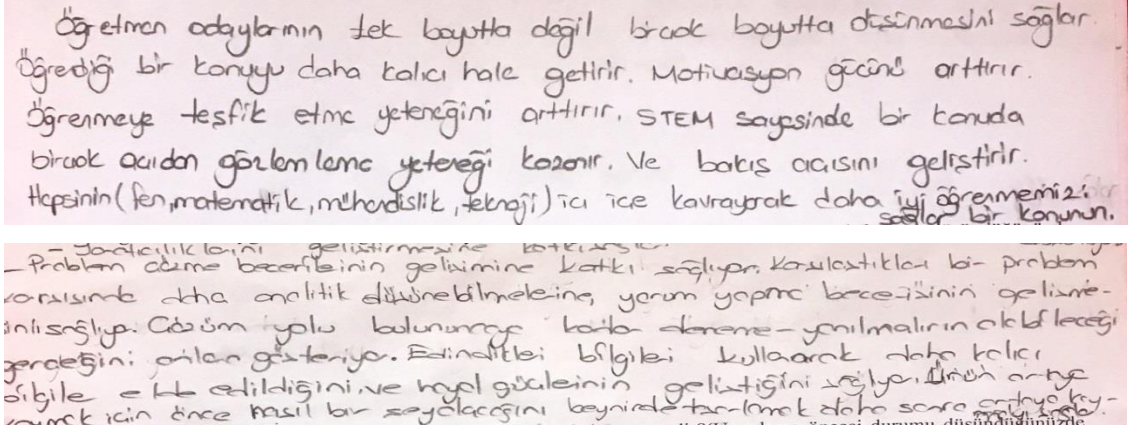 Öğretmen adaylarının tek boyutta değil bircok boyutta düsünmesini sağlar.
Öğrendiği bir konuyu daha kalıcı hale getirir. Motivasyon gücünü arttırır.
Öğrenmeye teşfik etme yeteneğini arttırır. STEM sayesinde bir konuda
bircok acıdan gözlemleme yeteneği kazanır. Ve bakıs acısını geliştirir.
Hepsinin (fen, matematik, mühendislik, teknoji) ici ice kavrayarak daha iyi öğrenmemizi
sağlar bir konunun.
- Yaratıcılıklarını geliştirmesine
- Problem cözme becerilerinin gelisimine katkı sağlıyor. Karsılastıkları bir problem
karsısında daha analitik düsünebilmelerine, yorum yapma becerisinin gelisme-
sağlıyor. Cözüm yolu bulununcaya kadar deneme-yanılmaların olabileceği
gerceğini onlara gösteriyor. Edindikleri bilgileri kullanarak daha kalıcı
bilgiler elde edildiğini, ve hayal güclerinin geliştiğini sağlıyor. Ürün ortaya
için önce nasıl bir sey olacağını beyninde daha sonra ortaya koy-
durumu düşündüğünüzde